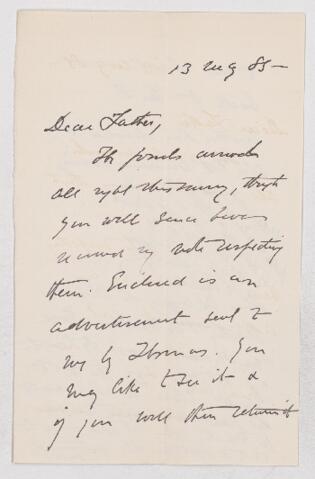 13 Aug 85 —
Dear Father,
The
all right this, though
you will have
received my note respecting
them. Enclosed is an
advertisement sent to
me by Thomas. You
may like to see it &
if you will then return it